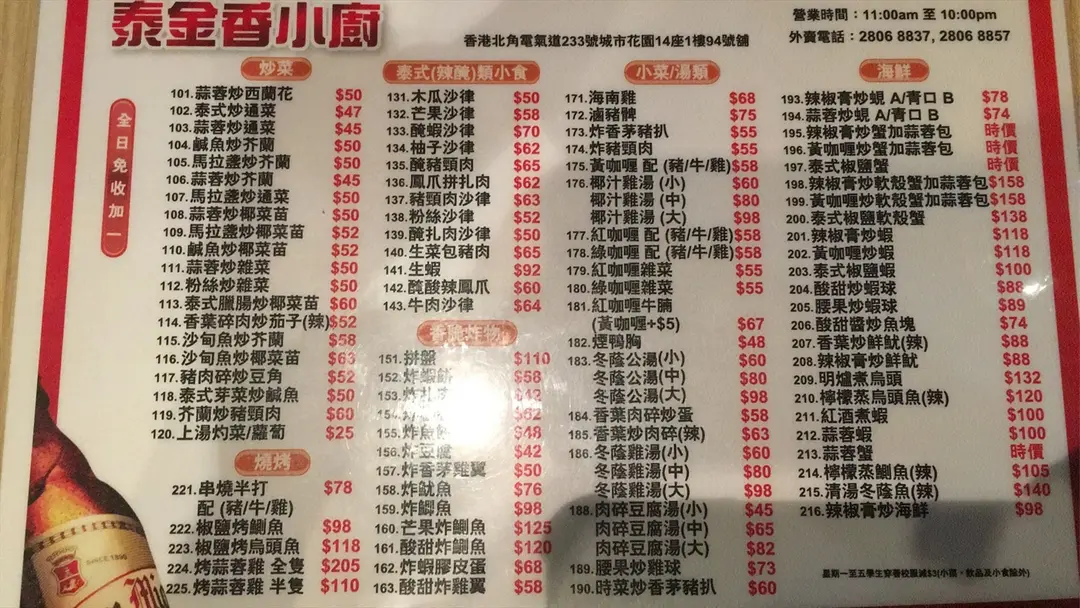 泰金香小廚
香港北角電氣道233號城市花園14座1樓94號舖
營業時間：11:00am 至 10:00pm
外賣電話：2806 8837, 2806 8857
全日免收加一
炒菜
101.蒜蓉炒西蘭花 $50
102.泰式炒通菜 $47
103.蒜蓉炒通菜 $45
104.鹹魚炒芥蘭 $50
105.馬拉盞炒芥蘭 $50
106.蒜蓉炒芥蘭 $45
107.馬拉盞炒通菜 $50
108.蒜蓉炒椰菜苗 $50
109.馬拉盞炒椰菜苗 $52
110.鹹魚炒椰菜苗 $52
111.蒜蓉炒雜菜 $50
112.粉絲炒雜菜 $50
113.泰式臘腸炒椰菜苗 $60
114.香葉碎肉炒茄子(辣)$52
115.沙甸魚炒芥蘭 $58
116.沙甸魚炒椰菜苗 $63
117.豬肉碎炒豆角 $52
118.泰式芽菜炒鹹魚 $50
119.芥蘭炒豬頸肉 $60
120.上湯灼菜/蘿蔔 $25
燒烤
221.串燒半打 $78
配 (豬/牛/雞)
222.椒鹽烤鯏魚 $98
223.椒鹽烤烏頭魚 $118
224.烤蒜蓉雞 全隻 $205
225.烤蒜蓉雞 半隻 $110
泰式(辣醃)類小食
131.木瓜沙律 $50
132.芒果沙律 $58
133.醃蝦沙律 $70
134.柚子沙律 $62
135.醃豬頸肉 $65
136.鳳爪拼扎肉 $62
137.豬頸肉沙律 $63
138.粉絲沙律 $52
139.醃扎肉沙律 $50
140.生菜包豬肉 $65
141.生蝦 $92
142.醃酸辣鳳爪 $60
143.牛肉沙律 $64
香脆炸物
151.拼盤 $110
152.炸蝦餅 $58
153.炸扎肉 $42
154. $62
155.炸魚 $48
156.炸豆腐 $42
157.炸香茅雞翼 $50
158.炸魷魚 $76
159.炸鯽魚 $98
160.芒果炸鯏魚 $125
161.酸甜炸鯏魚 $120
162.炸蝦膠皮蛋 $68
163.酸甜炸雞翼 $58
小菜/湯類
171.海南雞 $68
172.滷豬髀 $75
173.炸香茅豬扒 $55
174.炸豬頸肉 $55
175.黃咖喱 配 (豬/牛/雞)$58
176.椰汁雞湯 (小) $60
椰汁雞湯 (中) $80
椰汁雞湯 (大) $98
177.紅咖喱 配 (豬/牛/雞)$58
178.綠咖喱 配 (豬/牛/雞)$58
179.紅咖喱雜菜 $55
180.綠咖喱雜菜 $55
181.紅咖喱牛腩
(黃咖喱+$5) $67
182.煙鴨胸 $48
183.冬蔭公湯(小) $60
冬蔭公湯(中) $80
冬蔭公湯(大) $98
184.香葉肉碎炒蛋 $58
185.香葉炒肉碎(辣) $63
186.冬蔭雞湯(小) $60
冬蔭雞湯(中) $80
冬蔭雞湯(大) $98
188.肉碎豆腐湯(小) $45
肉碎豆腐湯(中) $65
肉碎豆腐湯(大) $82
189.腰果炒雞球 $73
190.時菜炒香茅豬扒 $60
海鮮
193.辣椒膏炒蜆 A/青口 B $78
194.蒜蓉炒蜆 A/青口 B $74
195.辣椒膏炒蟹加蒜蓉包 時價
196.黃咖喱炒蟹加蒜蓉包 時價
197.泰式椒鹽蟹 時價
198.辣椒膏炒軟殼蟹加蒜蓉包$158
199.黃咖喱炒軟殼蟹加蒜蓉包$158
200.泰式椒鹽軟殼蟹 $138
201.辣椒膏炒蝦 $118
202.黃咖喱炒蝦 $118
203.泰式椒鹽蝦 $100
204.酸甜炒蝦球 $88
205.腰果炒蝦球 $89
206.酸甜醬炒魚塊 $74
207.香葉炒鮮魷(辣) $88
208.辣椒膏炒鮮魷 $88
209.明爐煮烏頭 $132
210.檸檬蒸烏頭魚(辣) $120
211.紅酒煮蝦 $100
212.蒜蓉蝦 $100
213.蒜蓉蟹 時價
214.檸檬蒸鯏魚(辣) $105
215.清湯冬蔭魚(辣) $140
216.辣椒膏炒海鮮 $98
星期一至五學生穿著校服減$3(小菜，飲品及小食除外)
SINCE 1890